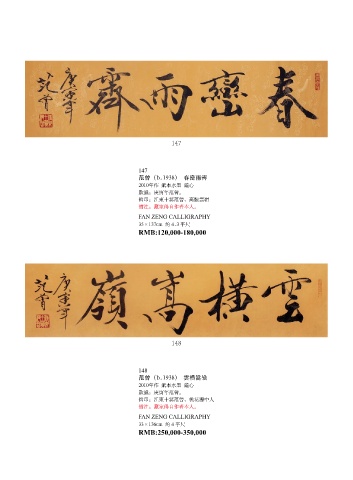 春巒雨霽
庚寅年
范曾
147
147
范曾 （b.1938） 春巒雨霽
2010年作 紙本水墨 鏡心
款識：庚寅年范曾。
FAN ZENG CALLIGRAPHY
35×137cm 約4.3平尺
RMB:120,000-180,000
雲橫嵩嶺
庚寅年
范曾
148
148
范曾 （b.1938） 雲橫嵩嶺
2010年作 紙本水墨 鏡心
款識：庚寅年范曾。
FAN ZENG CALLIGRAPHY
33×136cm 約4平尺
RMB:250,000-350,000